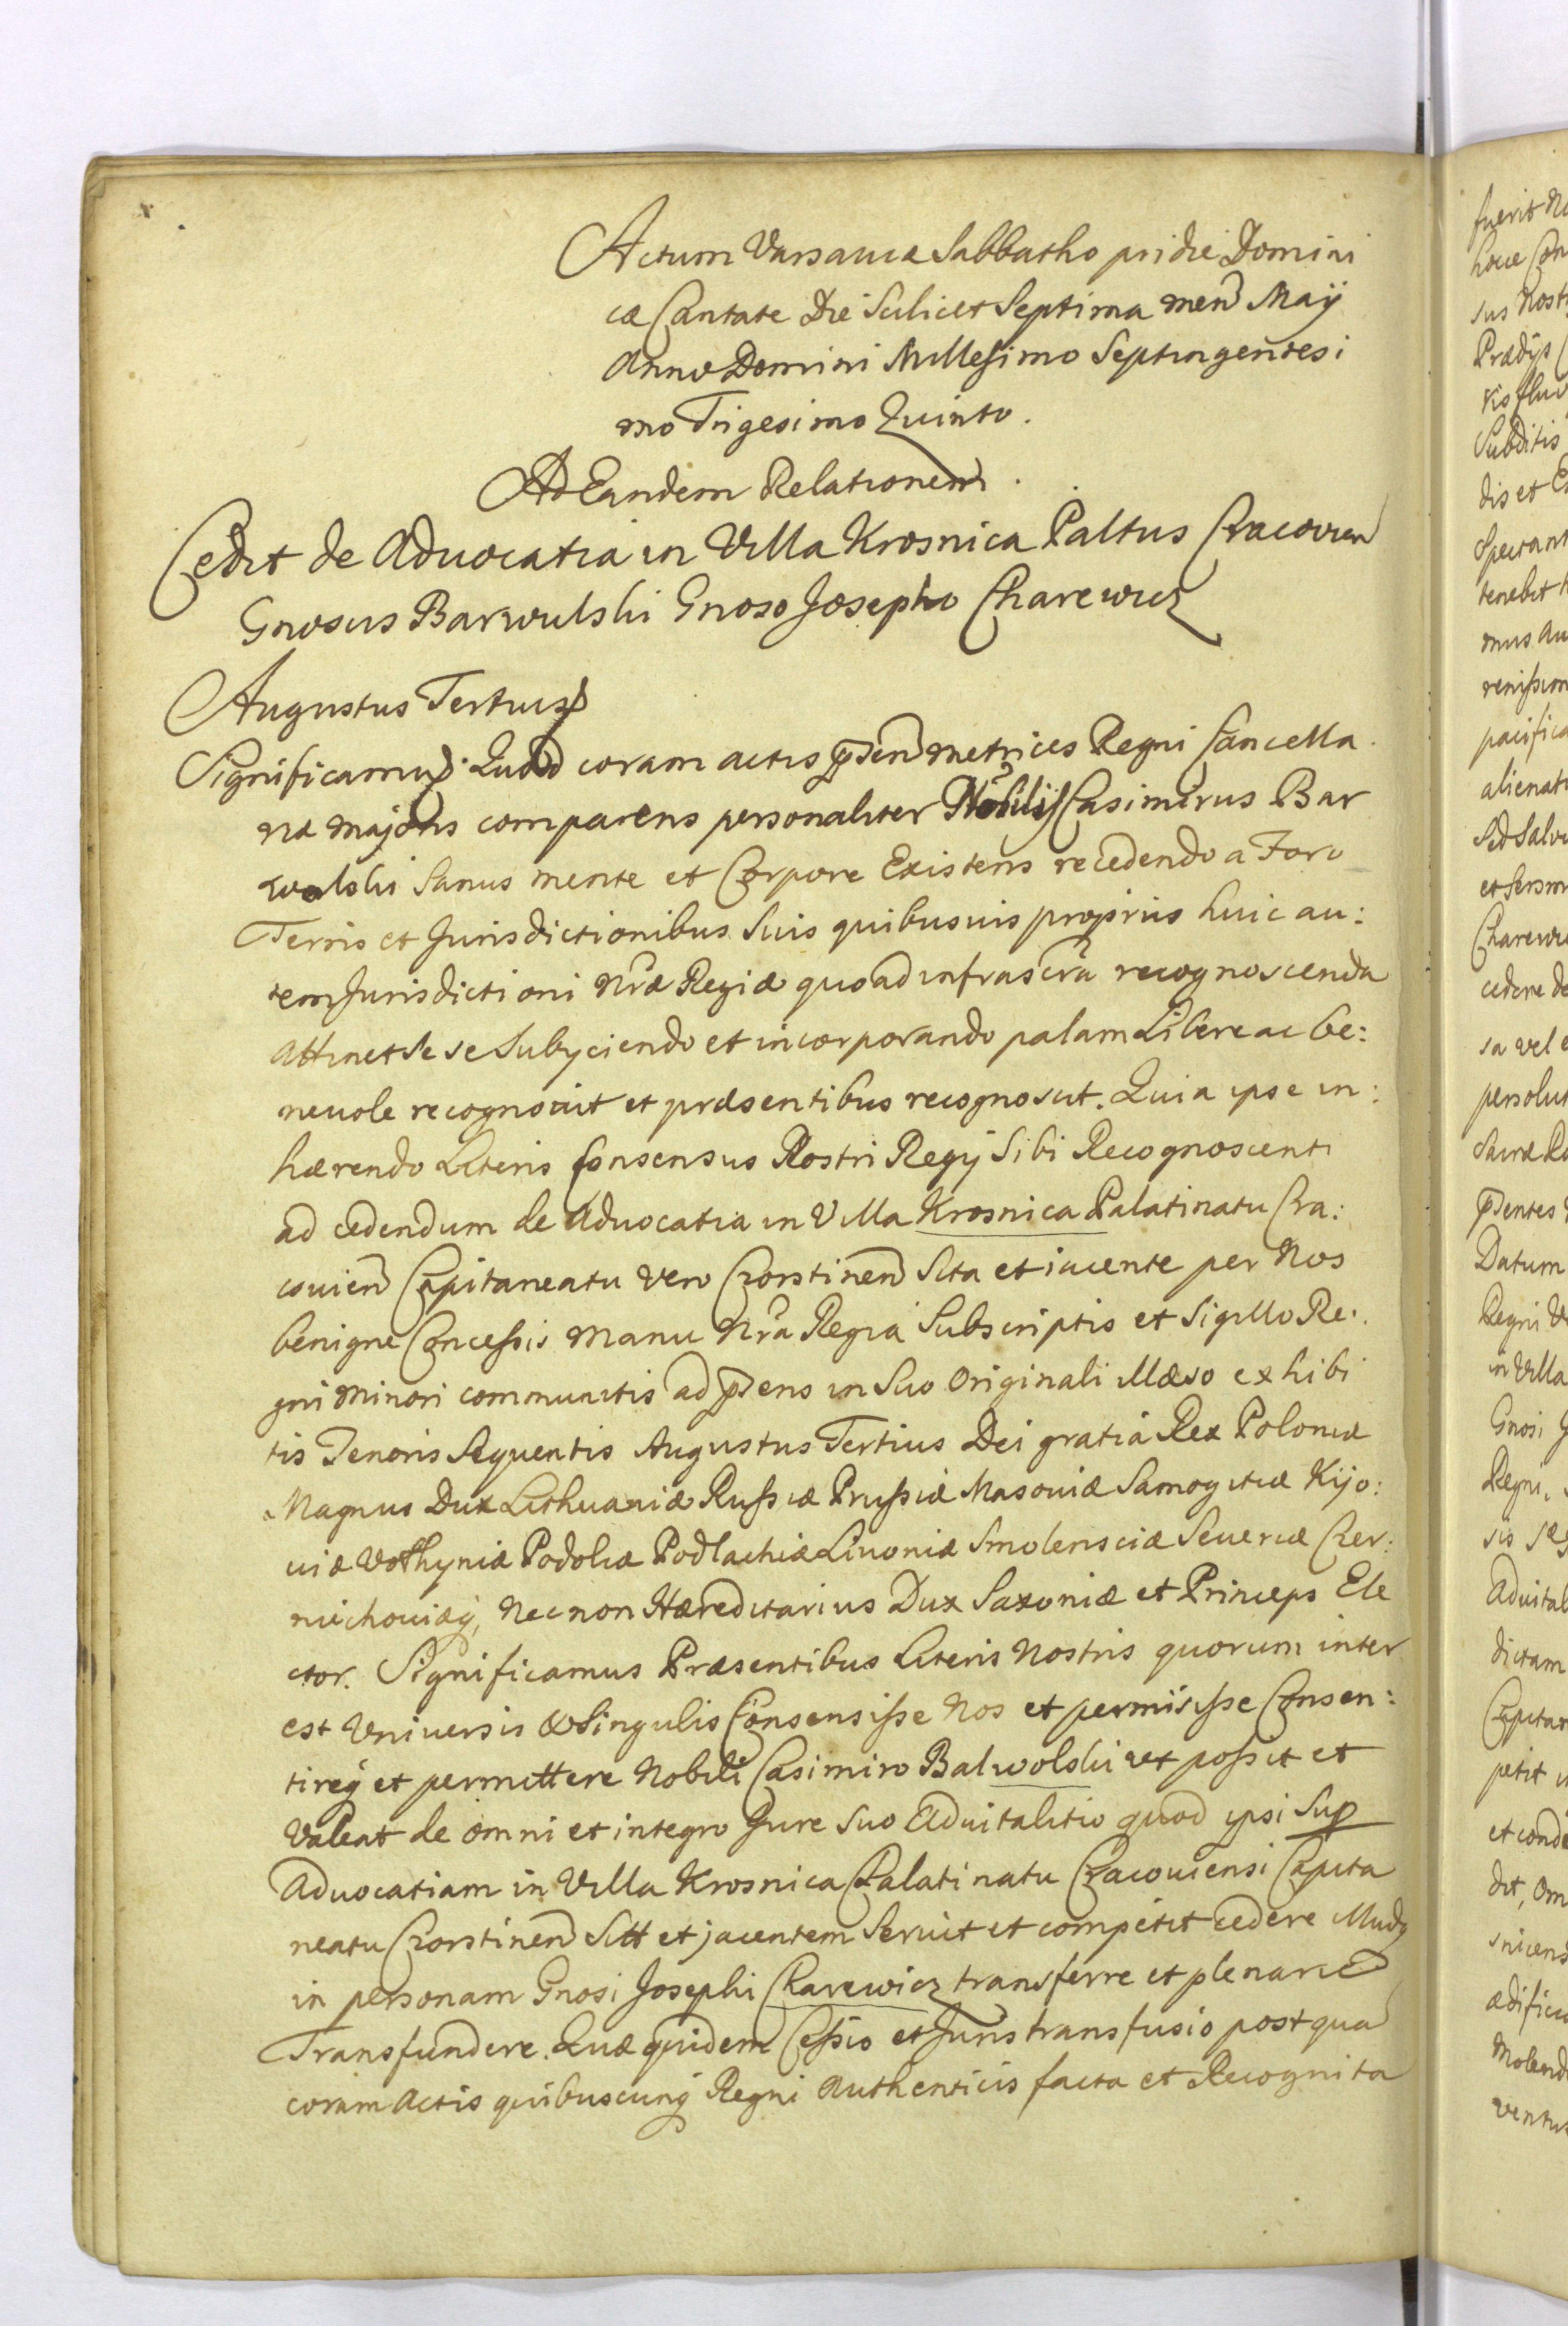 Actum Varsaviæ Sabbatho pridie Domini
cæ Cantate Die Scilicet Septima men Maÿ
Anno Domini Millesimo Septingentesi
mo Trigesimo Quinto.
Ad Eandem Relationem.
Cedit de Advocatia in Villa Krosnica Paltus Cracovien
Gnosus Barwulski Gnoso Josepho Charewicz
Augustus Tertius
Significamus. Quod coram actis pñsen metrices Regni Cancella
riæ majoris comparens personaliter Nobilis Casimirus Bar
wolski Sanus mente et Corpore Existens recedendo a Foro
Terris et Jurisdictionibus Suis quibusvis propriis huic au:
tem Jurisdictioni Nræ Regiæ quoad infrascra recognoscenda
attinet se se Subÿciendo et incorporando palam Libere ac be:
nevole recognovit et præsentibus recognoscit. Quia ipse in:
hærendo Literis Consensus Nostri Regÿ Sibi Recognoscenti
ad cedendum de Advocatia in Villa Krosnica Palatinatu Cra:
covien Capitaneatu vero Czorstinen Sita et iacente per Nos
benigne Concessis manu Nra Regia Subscriptis et Sigillo Re:
gni Minori communitis ad pñsens in Suo Originali illæso exhibi
tis Tenoris Sequentis Augustus Tertius Dei gratia Rex Poloniæ
Magnus Dux Lithuaniæ Russiæ Prussiæ Masoviæ Samogitiæ Kijo:
viæ Vołhyniæ Podoliæ Podlachiæ Livoniæ Smolensciæ Severiæ Czer:
niechoviæq, Necnon Hæreditarius Dux Saxoniæ et Princeps Ele
ctor. Significamus Præsentibus Literis Nostris quorum inter
est Universis & Singulis Consensisse Nos et permisisse Consen:
tireq et permittere Nobili Casimiro Balwolski ut possit et
valeat de omni et integro Jure Suo Advitalitio quod ipsi Sup
Advocatiam in Villa Krosnica Palatinatu Cracoviensi Capita
neatu Czorstinen Sitt et jacentem Servit et competit cedere Illudq
in personam Gnosi Josephi Charewicz transferre et plenarie
Transfundere. Quæ quidem Cessio et Juris transfusio postqua
coram Actis quibuscunq Regni Authenticis facta et Recognita